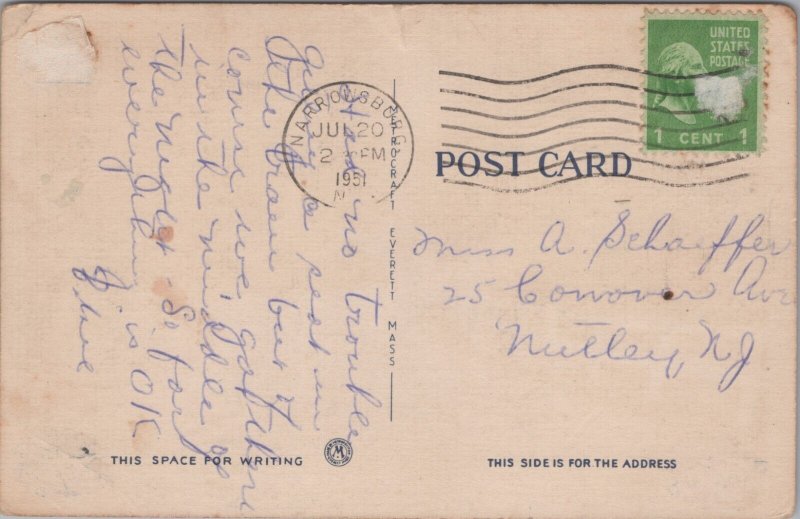 Had no trouble
getting a seat in
the train but of
course we got there
in the middle of
the night. So far
everything is OK
NARROWSBURG
JUL 20
2 PM
1951
N.Y.
UNITED
STATES
POSTAGE
1 CENT 1
POST CARD
Miss A. Schaeffer
25 Conover Ave
Nutley, NJ
NEPROCRAFT EVERETT MASS
THIS SPACE FOR WRITING
M
THIS SIDE IS FOR THE ADDRESS